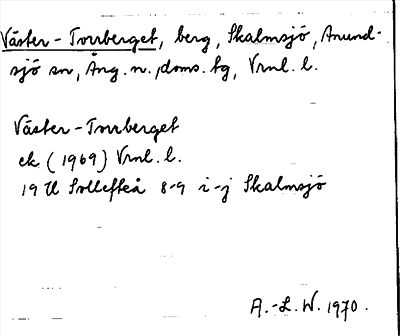 Väster-Torrberget, berg, Skalmsjö, Anund-
sjö sn, Ång. n., doms. tg, Vrnl. l.
Väster-Torrberget
ek (1969) Vrnl. l.
19 H Sollefteå 8-9 i-j Skalmsjö
A.-L. W. 1970.